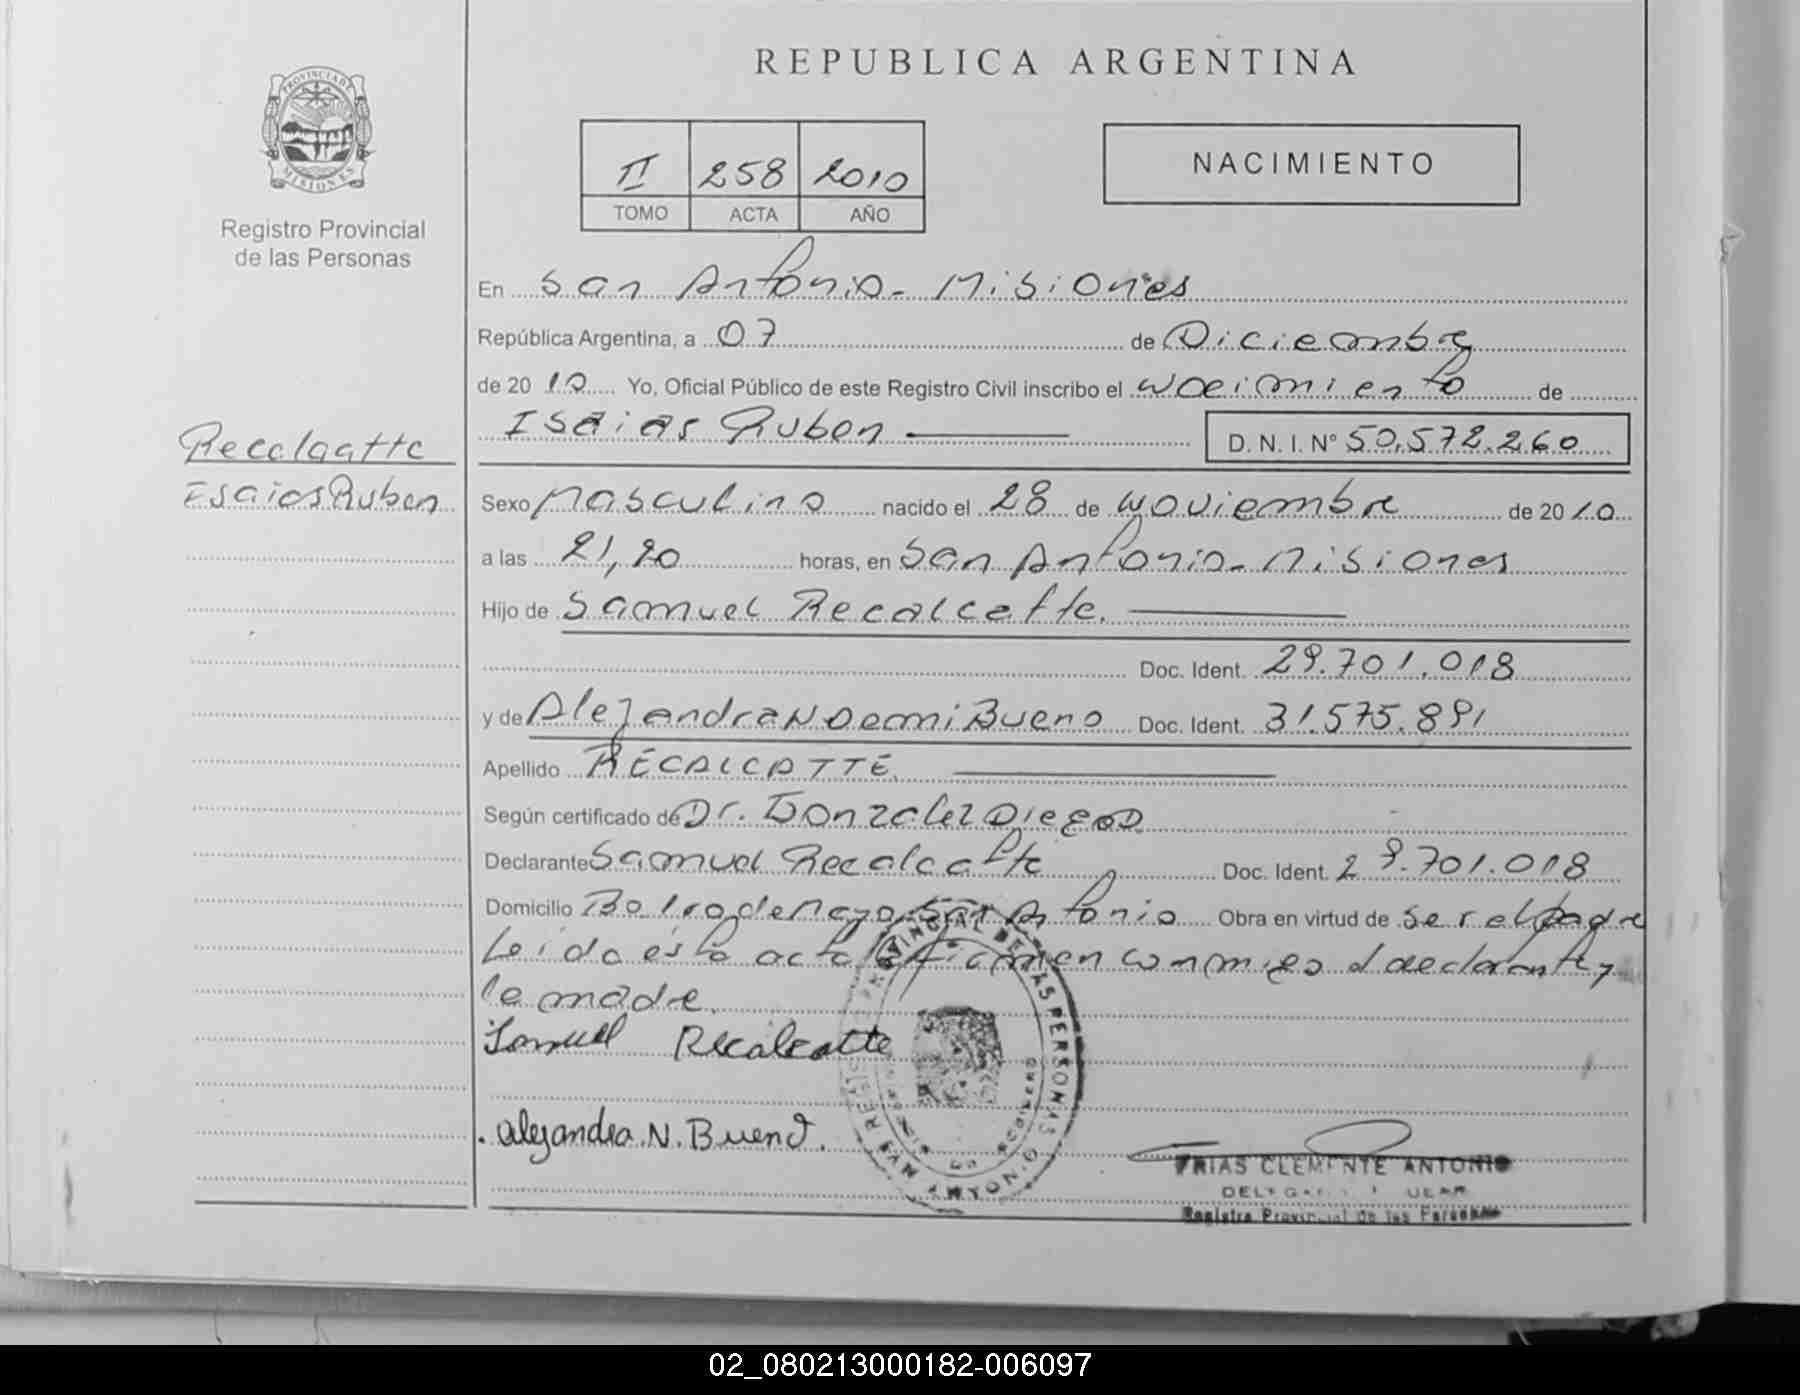 REPUBLICA ARGENTINA
PROVINCIA DE MISIONES
Registro Provincial
de las Personas
II 258 2010
TOMO ACTA AÑO
NACIMIENTO
En San Antonio - Misiones
República Argentina, a 07 de Diciembre
de 20 10 Yo, Oficial Público de este Registro Civil inscribo el nacimiento de
Isaias Ruben
D. N. I. Nº 50.572.260
Recalcatte
Isaias Ruben
Sexo Masculino nacido el 28 de Noviembre de 20 10
a las 21,20 horas, en San Antonio - Misiones
Hijo de Samuel Recalcatte.
Doc. Ident. 29.701.018
y de Alejandra Noemi Bueno Doc. Ident. 31.575.891
Apellido RECALCATTE.
Según certificado de Dr. Gonzalez Diego D.
Declarante Samuel Recalcatte Doc. Ident. 29.701.018
Domicilio Barrio de Mayo San Antonio Obra en virtud de ser el padre
Leida esta acta la firman conmigo el declarante y
la madre.
Samuel Recalcatte
Alejandra N. Bueno.
REGISTRO PROVINCIAL DE LAS PERSONAS
SAN ANTONIO
FRIAS CLEMENTE ANTONIO
Registro Provincial de las Personas
02_080213000182-006097